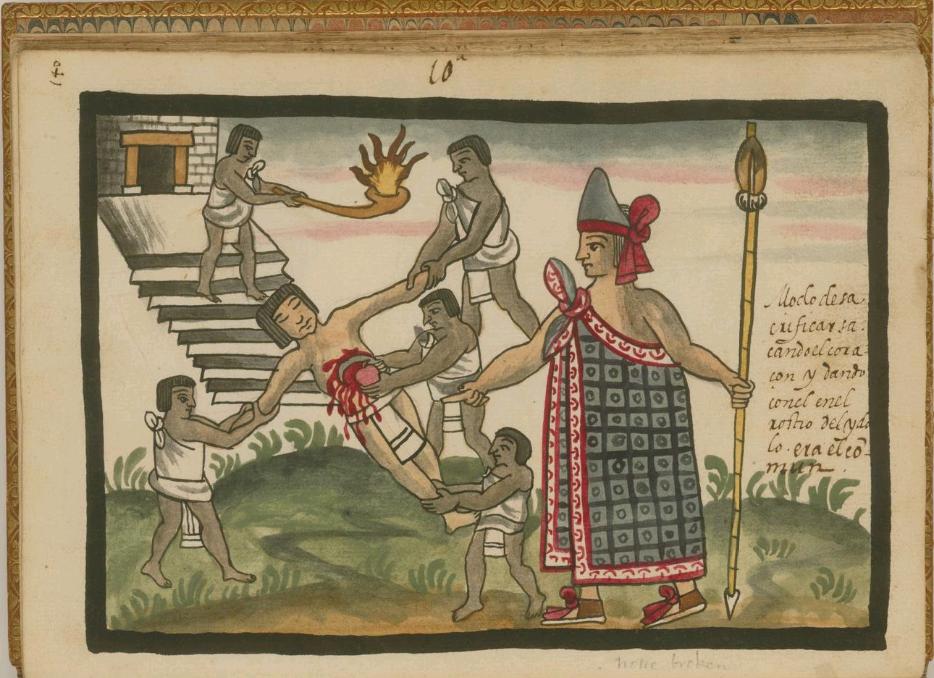 140
10ª
Modo de sa
crificar sa
cando el cora-
çon y dando
con el en el
rostro del ydo
lo. era el co-
mun.